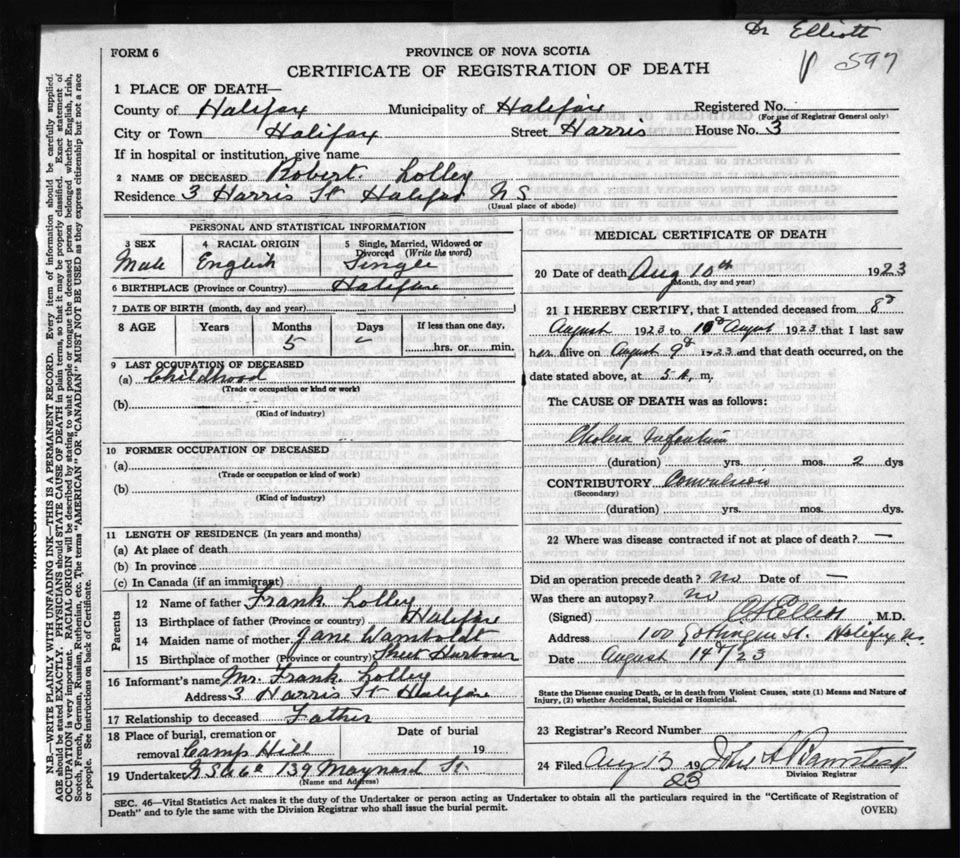 Dr Elliott
597
FORM 6
PROVINCE OF NOVA SCOTIA
CERTIFICATE OF REGISTRATION OF DEATH
1 PLACE OF DEATH—
County of Halifax Municipality of Halifax Registered No.
(For use of Registrar General only)
City or Town Halifax Street Harris House No. 3
If in hospital or institution, give name
2 NAME OF DECEASED Robert Lolley
Residence 3 Harris St Halifax N S.
(Usual place of abode)
PERSONAL AND STATISTICAL INFORMATION
3 SEX 4 RACIAL ORIGIN 5 Single, Married, Widowed or Divorced (Write the word)
Male English Single
6 BIRTHPLACE (Province or Country) Halifax
7 DATE OF BIRTH (month, day and year)
8 AGE Years Months Days If less than one day,
5 hrs. or min.
9 LAST OCCUPATION OF DECEASED
(a) Childhood
(Trade or occupation or kind or work)
(b)
(Kind of industry)
10 FORMER OCCUPATION OF DECEASED
(a)
(Trade or occupation or kind of work)
(b)
(Kind of industry)
11 LENGTH OF RESIDENCE (In years and months)
(a) At place of death
(b) In province
(c) In Canada (if an immigrant)
Parents
12 Name of father Frank Lolley
13 Birthplace of father (Province or country) Halifax
14 Maiden name of mother Jane Wamboldt
15 Birthplace of mother (Province or country) Sheet Harbour
16 Informant's name Mr. Frank Lolley
Address 3 Harris St Halifax
17 Relationship to deceased Father
18 Place of burial, cremation or removal Camp Hill
Date of burial 19
19 Undertaker 139 Maynard St
(Name and Address)
MEDICAL CERTIFICATE OF DEATH
20 Date of death Aug 10th 1923
(Month, day and year)
21 I HEREBY CERTIFY, that I attended deceased from 8th
August 1923 to 10th August 1923 that I last saw
him alive on August 9th 1923 and that death occurred, on the
date stated above, at 5 A. m.
The CAUSE OF DEATH was as follows:
Cholera Infantum
(duration) yrs. mos. 2 dys
CONTRIBUTORY Convulsion
(Secondary)
(duration) yrs. mos. dys.
22 Where was disease contracted if not at place of death? —
Did an operation precede death? No Date of —
Was there an autopsy? no
(Signed) Elliott M.D.
Address 100 Gottingen St. Halifax N.S.
Date August 14th/23
State the Disease causing Death, or in death from Violent Causes, state (1) Means and Nature of
Injury, (2) whether Accidental, Suicidal or Homicidal.
23 Registrar's Record Number
24 Filed Aug 13 1923 John
Division Registrar
SEC. 46—Vital Statistics Act makes it the duty of the Undertaker or person acting as Undertaker to obtain all the particulars required in the "Certificate of Registration of
Death" and to fyle the same with the Division Registrar who shall issue the burial permit.
(OVER)
N.B.—WRITE PLAINLY WITH UNFADING INK—THIS IS A PERMANENT RECORD. Every item of information should be carefully supplied.
AGE should be stated EXACTLY. PHYSICIANS should STATE CAUSE OF DEATH in plain terms, so that it may be properly classified. Exact statement of
OCCUPATION is very important. RACIAL ORIGIN will be described by stating to what people or tongue the deceased person belonged whether English, Irish,
Scotch, French, German, Russian, Ruthenian, etc. The terms "AMERICAN" OR "CANADIAN" MUST NOT BE USED as they express citizenship but not a race
or people. See instructions on back of Certificate.